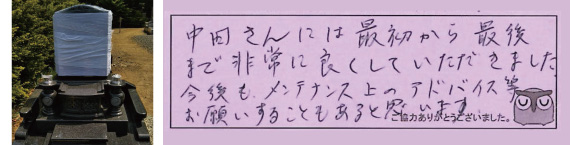 中田さんには最初から最後
まで非常に良くしていただきました
今後も、メンテナンス上のアドバイス等
お願いすることもあると思います
ご協力ありがとうございました。